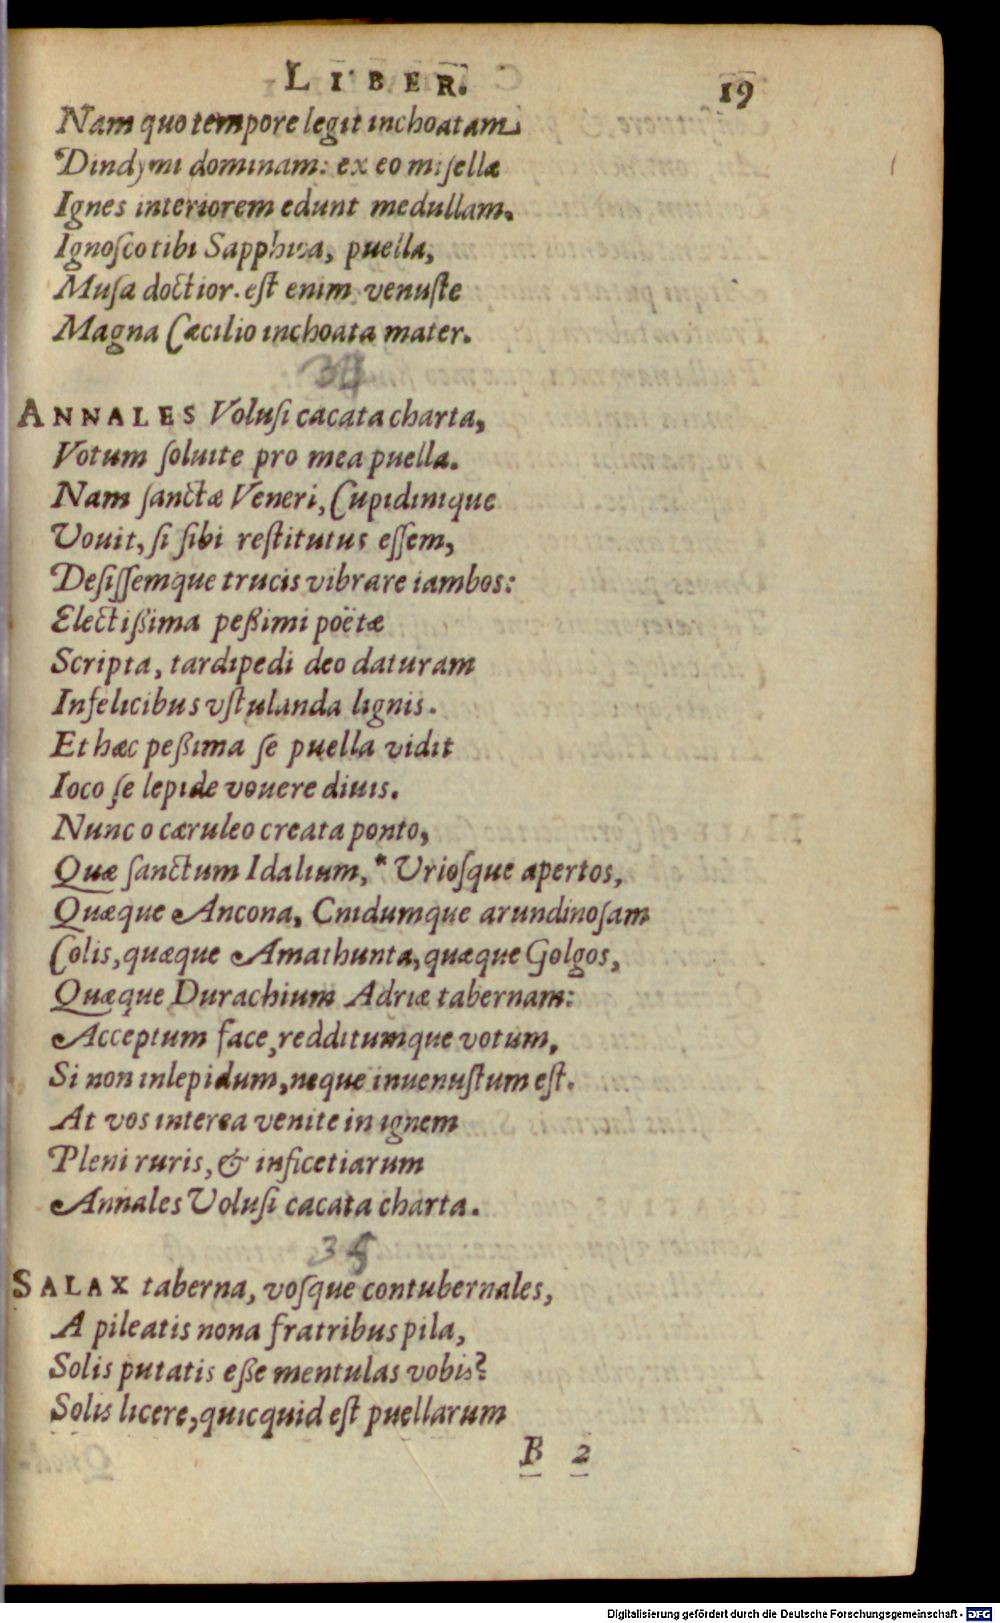 LIBER. 19
Nam quo tempore legit inchoatam
Dindymi dominam: ex eo misellæ
Ignes interiorem edunt medullam.
Ignosco tibi Sapphica, puella,
Musa doctior. est enim venuste
Magna Cæcilio inchoata mater.
34
ANNALES Volusi cacata charta,
Votum soluite pro mea puella.
Nam sanctæ Veneri, Cupidinique
Vouit, si sibi restitutus essem,
Desissemque trucis vibrare iambos:
Electißima peßimi poëtæ
Scripta, tardipedi deo daturam
Infelicibus vstulanda lignis.
Et hæc peßima se puella vidit
Ioco se lepide vouere diuis.
Nunc o cæruleo creata ponto,
Quæ sanctum Idalium, * Uriosque apertos,
Quæque Ancona, Cnidumque arundinosam
Colis, quæque Amathunta, quæque Golgos,
Quæque Durachium Adriæ tabernam:
Acceptum face, redditumque votum,
Si non inlepidum, neque inuenustum est.
At vos interea venite in ignem
Pleni ruris, & inficetiarum
Annales Volusi cacata charta.
35
SALAX taberna, vosque contubernales,
A pileatis nona fratribus pila,
Solis putatis eße mentulas vobis?
Solis licere, quicquid est puellarum
B 2
Digitalisierung gefördert durch die Deutsche Forschungsgemeinschaft - DFG